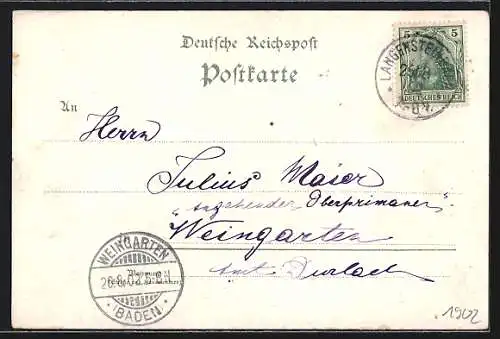 Deutsche Reichspost
Postkarte
5 5
DEUTSCHES REICH
An
Herrn
Julius Maier
"angehender Oberprimaner"
Weingarten
Amt Durlach
WEINGARTEN
26.8.02.
(BADEN)
1902